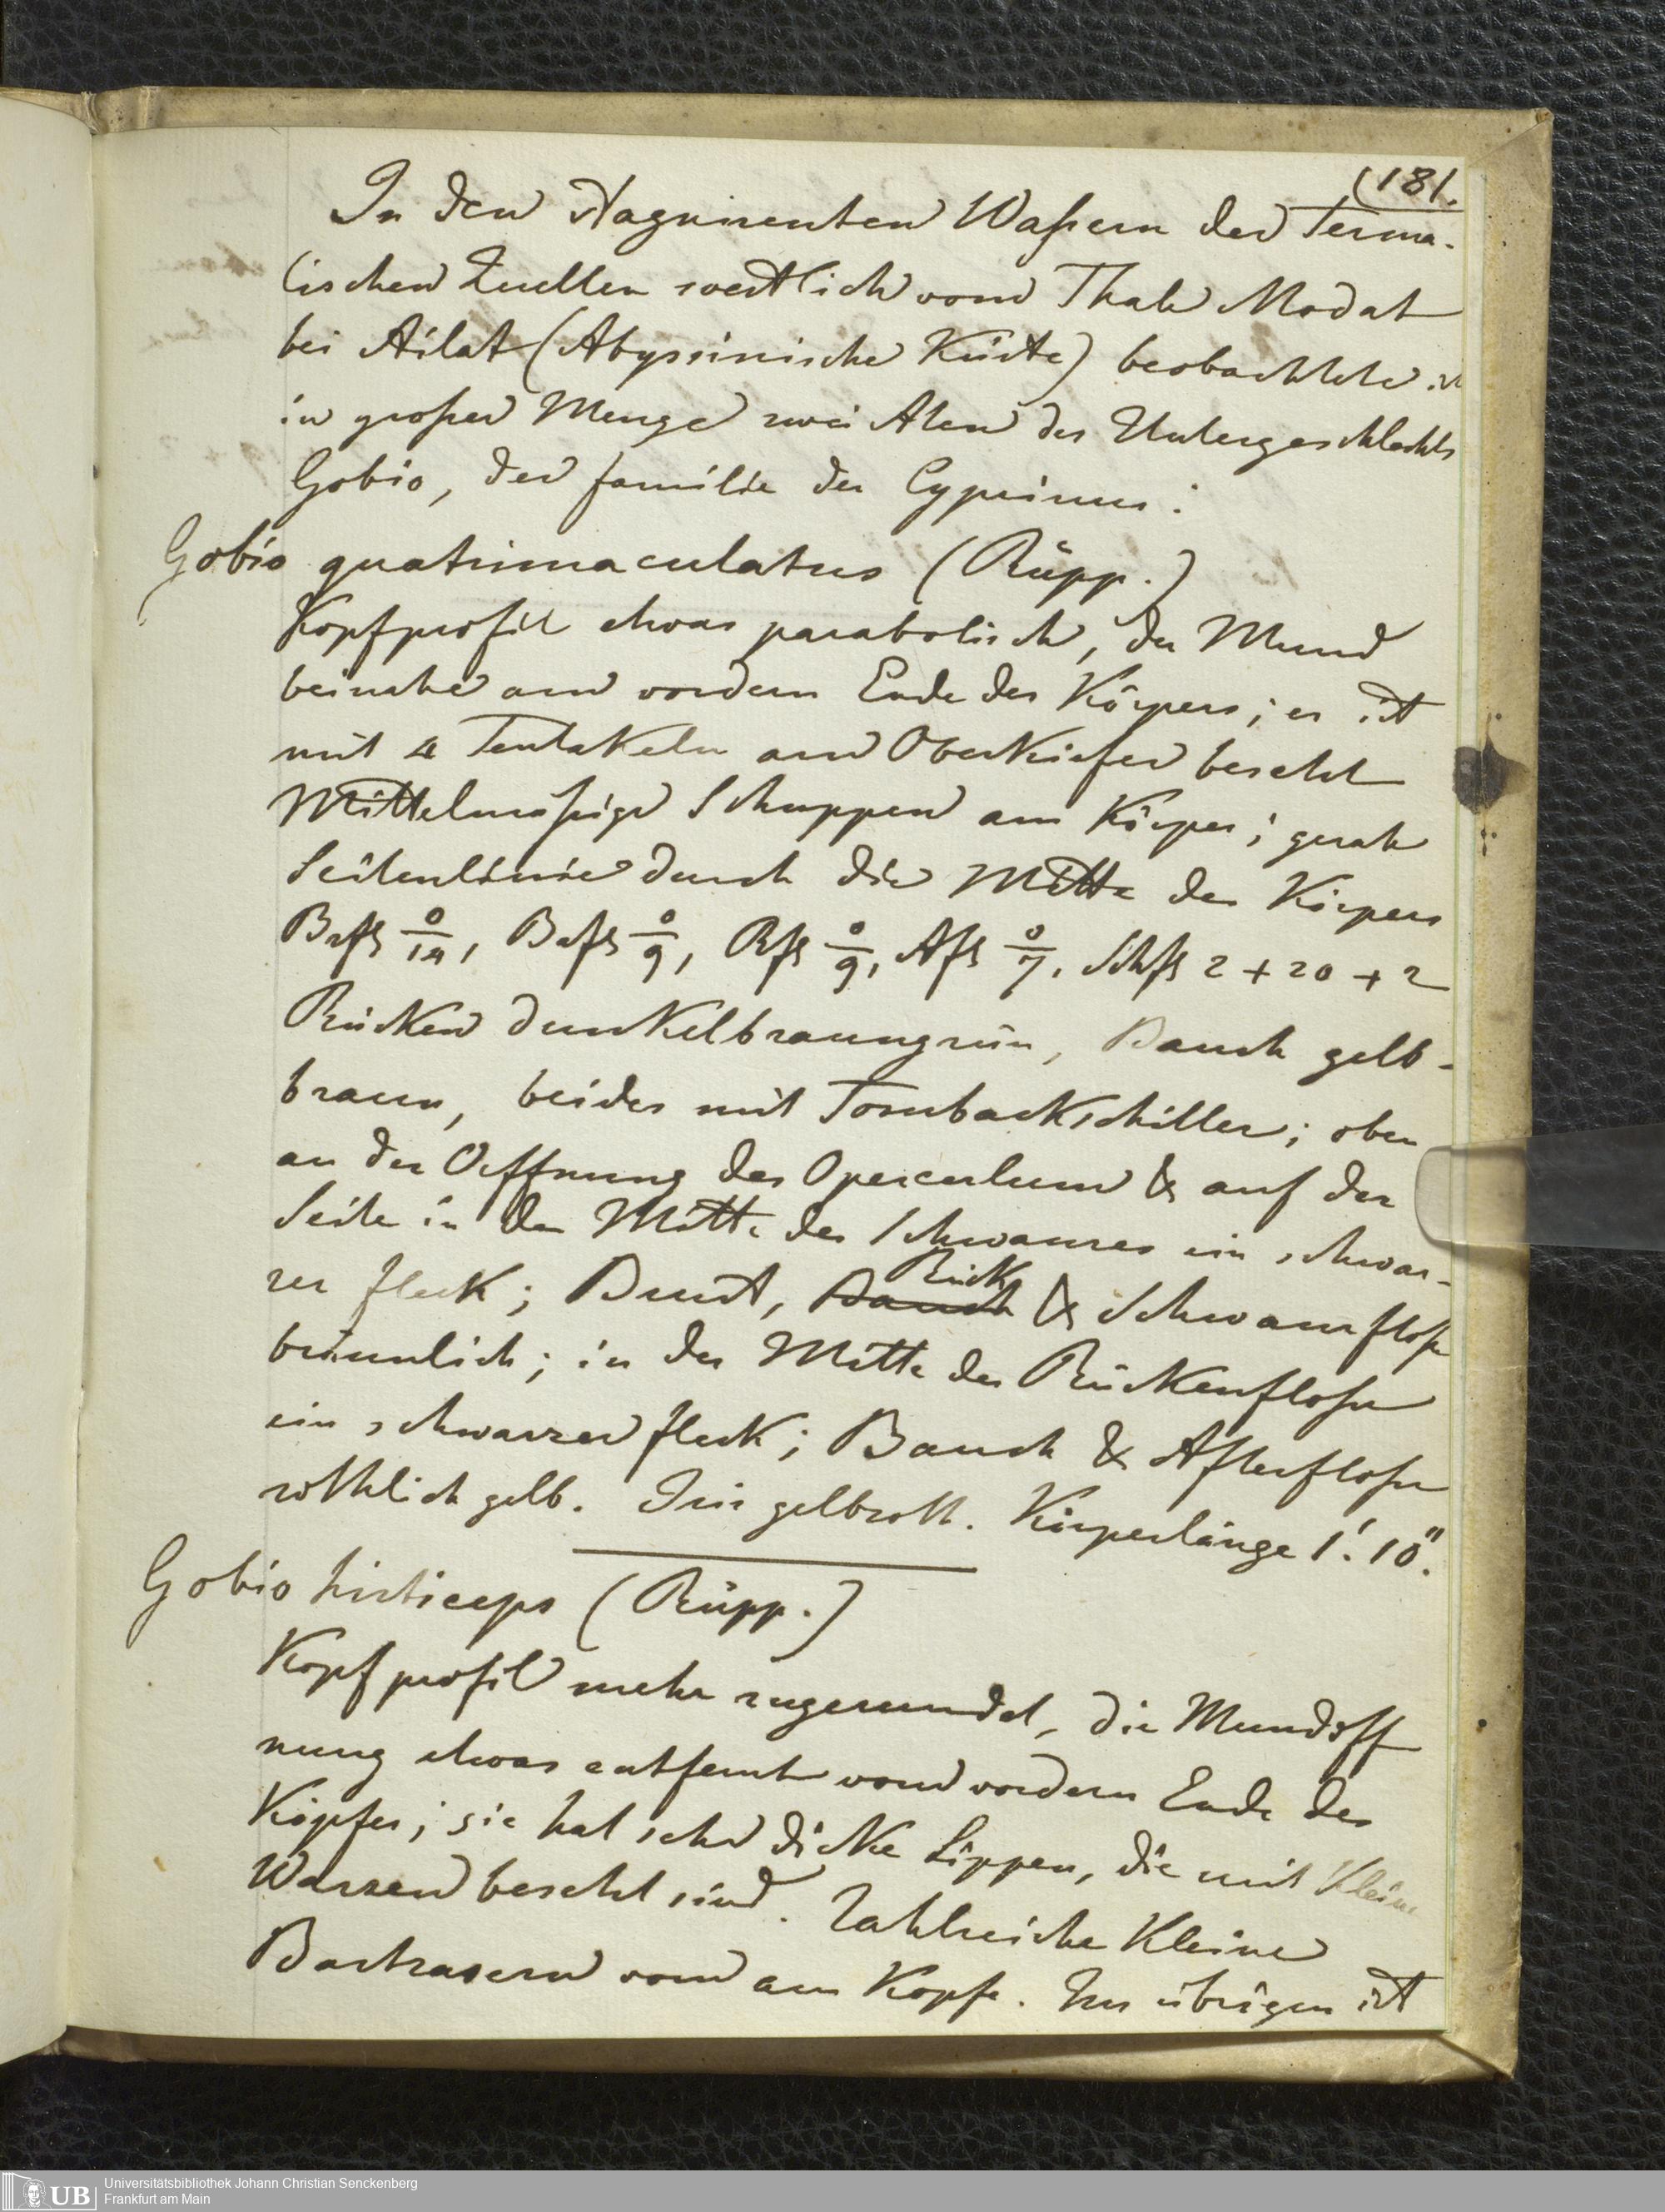 (181.
In den stagnirenten Waßern der Terma-
lischen Quellen westlich vom Thale Modat
bei Ailat (Abyssinische Küste) beobachtete ich
in großer Menge zwei Aten des Untergeschlechts
Gobio, der familie der Cyprinus:
Gobio quatrimaculatus (Rüpp.)
Kopfprofil etwas parabolisch, der Mund
beinahe am vordern Ende des Körpers; er ist
mit 4 Tentakeln am Oberkiefer besetzt
Mittelmäßige Schuppen am Körper; gerade
Seitenlinie durch die Mitte des Körpers
Brfß 0/14, Bafß 0/9, Rfß 0/9, Afß 0/7, Schfß 2 + 20 + 2
Rücken dunkelbraungrün, Bauch gelb-
braun, beides mit Tombackschiller; oben
an der Oeffnung des Operculum & auf der
Seite in der Mitte des Schwanzes ein schwar-
zer fleck; Brust, Bauch Rück & Schwanzfloße
bräunlich; in der Mitte der Rückenfloße
ein schwarzer fleck; Bauch & Afterfloße
rothlich gelb. Iris gelbroth. Körperlänge 1'. 10".
Gobio hirticeps (Rüpp.)
Kopfprofil mehr zugerundet, die Mundöff
nung etwas entfernt vom vordern Ende des
Kopfes; sie hat sehr dicke Lippen, die mit Kleine
Warzen besetzt sind. Zahlreiche Kleine
Bartrasern vorn am Kopfe. Im übrigen ist
UB Universitätsbibliothek Johann Christian Senckenberg
Frankfurt am Main